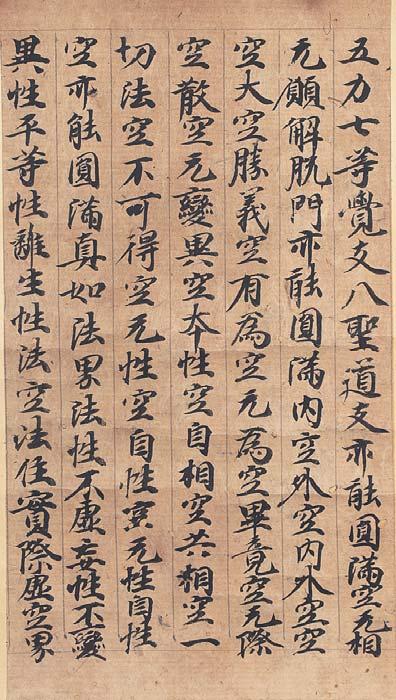 五力七等覺支八聖道支亦能圓滿空无相
无願解脫門亦能圓滿內空外空內外空空
空大空勝義空有為空无為空畢竟空无際
空散空无變異空本性空自相空共相空一
切法空不可得空无性空自性空无性自性
空亦能圓滿真如法界法性不虛妄性不變
異性平等性離生性法定法住實際虛空界